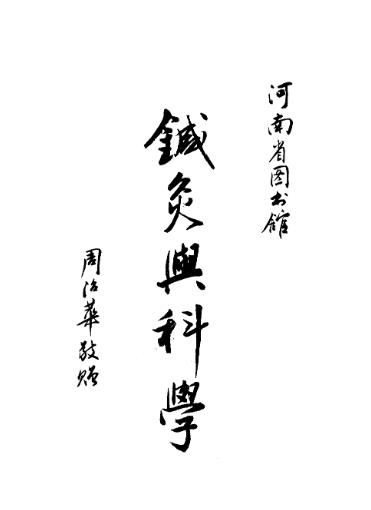 河南省图书館
鍼灸與科學
周治華敬赠